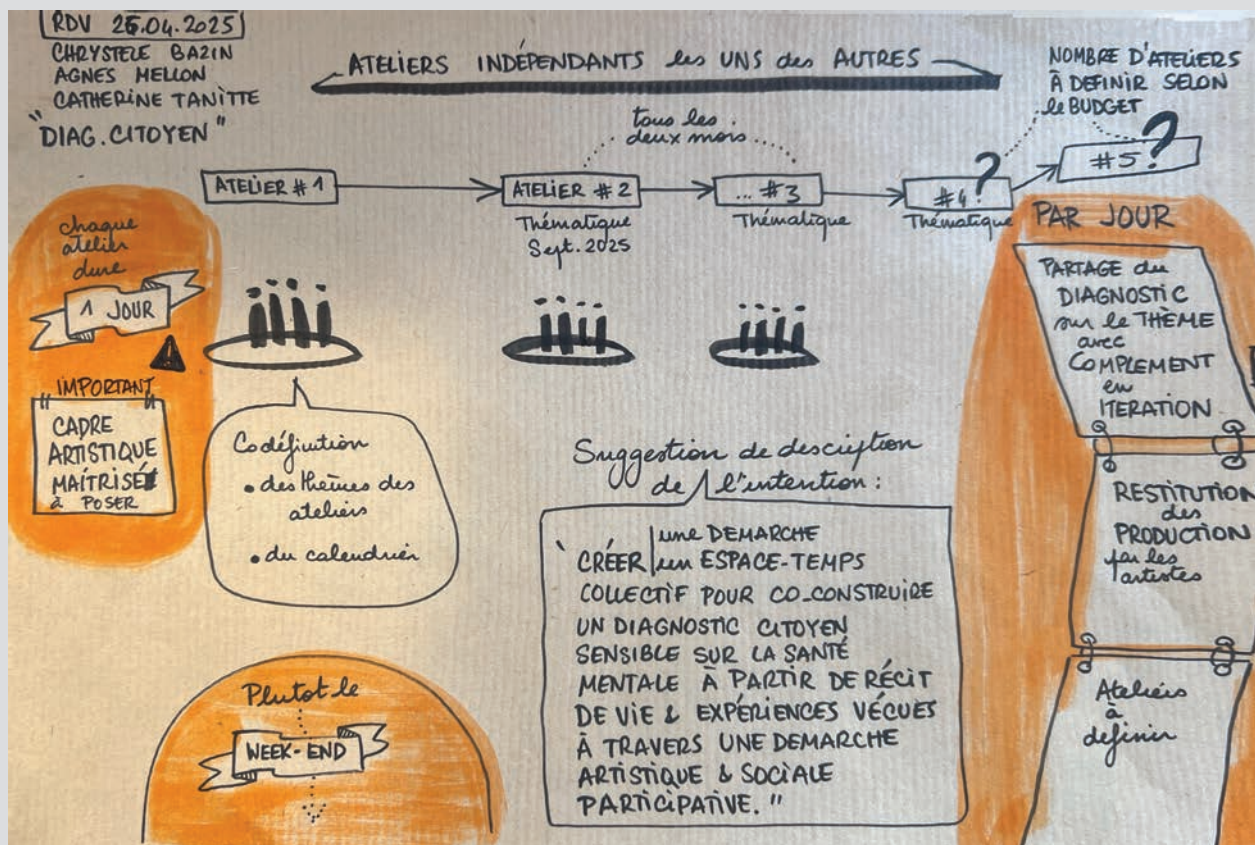 RDV 25.04.2025
CHRYSTELE BAZIN
AGNES MELLON
CATHERINE TANITTE
"DIAG.CITOYEN"
ATELIERS INDÉPENDANTS les UNS des AUTRES
NOMBRE D'ATELIERS
À DEFINIR SELON
le BUDGET
tous les
deux mois
ATELIER #1
ATELIER #2
Thématique
Sept. 2025
... #3
Thématique
#4?
Thématique
#5?
chaque
atelier
dure
1 JOUR
IMPORTANT
CADRE
ARTISTIQUE
MAÎTRISÉ
à POSER
Codéfinition
• des thèmes des
ateliers
• du calendrier
Plutot le
WEEK-END
Suggestion de description
de l'intention :
"CRÉER une DEMARCHE
un ESPACE-TEMPS
COLLECTIF POUR CO-CONSTRUIRE
UN DIAGNOSTIC CITOYEN
SENSIBLE SUR LA SANTÉ
MENTALE À PARTIR DE RÉCIT
DE VIE & EXPÉRIENCES VÉCUES
À TRAVERS UNE DEMARCHE
ARTISTIQUE & SOCIALE
PARTICIPATIVE."
PAR JOUR
PARTAGE du
DIAGNOSTIC
sur le THÈME
avec
COMPLEMENT
en
ITERATION
RESTITUTION
des
PRODUCTION
par les
artistes
Ateliers
à
définir